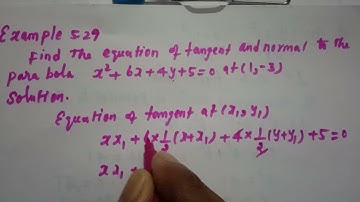 Example 5.29
Find The equation of tangent and normal to the
parabola x²+6x+4y+5=0 at (1,-3)
Solution.
Equation of tangent at (x₁,y₁)
xx₁ + 6×½(x+x₁) + 4×½(y+y₁) + 5 = 0
xx₁ +